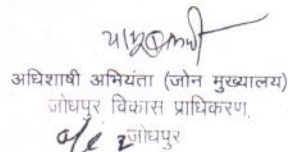 अधिशाषी अभियंता (जोन मुख्यालय)
जोधपुर विकास प्राधिकरण,
जोधपुर